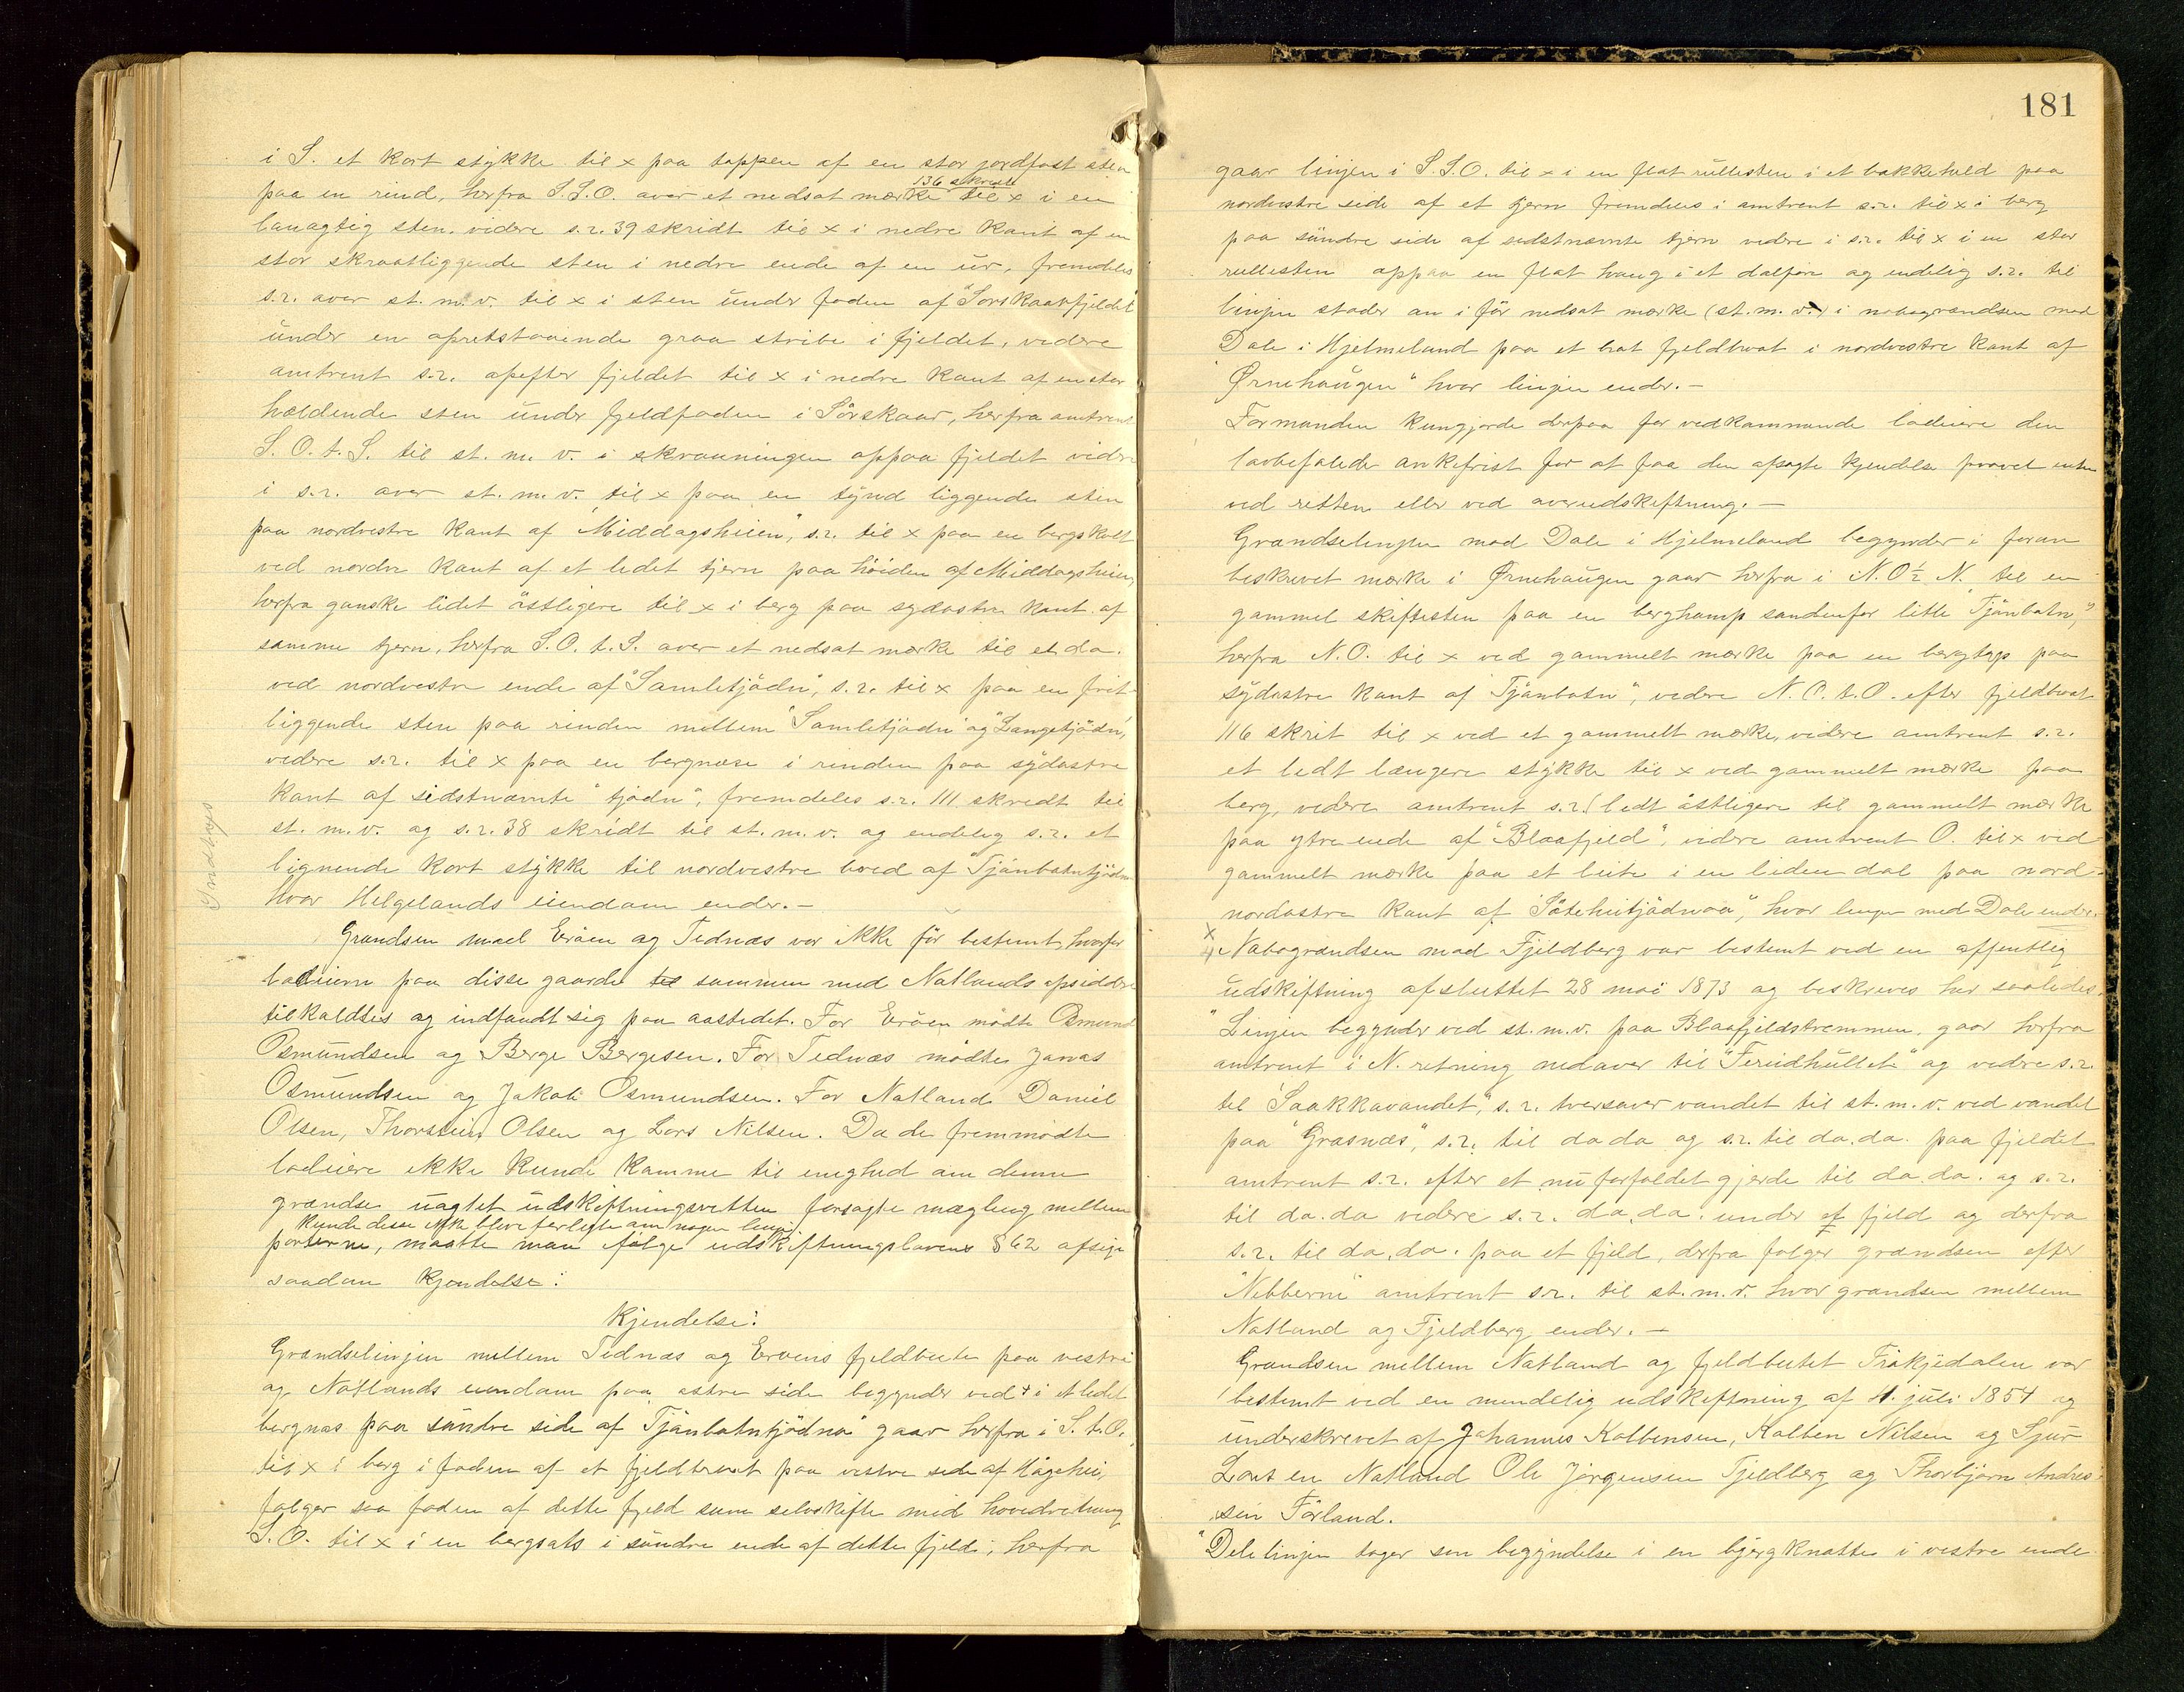 i S. et kort stykke til x paa toppen af en stor jordfast sten
136 skridt
paa en rind, herfra S.S.O. over et nedsat mærke til x i en
lauagtig sten. videre s.r. 39 skridt til x i nedre kant af en
stor skraatliggende sten i nedre ende af en ur, fremdeles
s.r. over st. m. v. til x i sten under foden af "Sörskaarfjeldet"
under en opretstaaende graa stribe i fjeldet, videre
omtrent s.r. opefter fjeldet til x i nedre kant af en stor
hældende sten under fjeldfoden i Sörskaar, herfra omtrent
S. O. t. S. til st. m. v. i skraaningen oppaa fjeldet videre
i s.r. over st. m. v. til x paa en tynd liggende sten
paa nordvestre kant af "Middagsheien", s.r. til x paa en bergskolt
ved nordre kant af et lidet tjern paa höiden af Middagsheien,
herfra ganske lidet östligere til x i berg paa sydöstre kant af
samme tjern, herfra S.O. t. S. over et nedsat mærke til et do.
ved nordvestre ende af "Samletjödn", s.r. til x paa en frit-
liggende sten paa rinden mellem "Samletjödn" og "Langetjödn",
videre s.r. til x paa en bergnase i rinden paa sydöstre
kant af sidstnævnte "tjödn", fremdeles s.r. 111 skridt til
st. m. v. og s.r. 38 skridt til st. m. v. og endelig s.r. et
lignende kort stykke til nordvestre bred af "Tjänbotntjödn"
hvor Helgelands eiendom ender.—
Grændsen mod Eröen og Tednæs var ikke för bestemt, hvorfor
lodeierne paa disse gaarde sammen med Natlands opsiddere
tilkaldtes og indfandt sig paa aastedet. For Eröen mödte Osmund
Osmundsen og Berge Bergesen. For Tednæs mödte Jonas
Osmundsen og Jakob Osmundsen. For Natland Daniel
Olsen, Thorstein Olsen og Lars Nilsen. Da de fremmödte
lodeiere ikke kunde komme til enighed om denne
grændse uagtet udskiftningsretten forsögte mægling mellem
kunde disse ikke blive forligte om nogen linje
parterne, maatte man fölge udskiftningslovens § 62 afsige
saadan kjendelse:
Kjendelse:
Grændselinjen mellem Tednæs og Eröens fjeldbeite paa vestre
og Natlands eiendom paa östre side begynder ved x i et lidet
bergnæs paa söndre side af "Tjänbotntjödnå" gaar herfra i S. t. O.
til x i berg i foden af et fjeldbrat paa vestre side af Hägehei,
fölger saa foden af dette fjeld som selvskifte med hovedretning
S. O. til x i en bergsats i söndre ende af dette fjeld, herfra
181
gaar linjen i S.S.O. til x i en flat rullesten i et bakkeheld paa
nordvestre side af et tjern fremdeles i omtrent s.r. til x i berg
paa söndre side af sidstnævnte tjern videre i s.r. til x i en stor
rullesten oppaa en flat haug i et dalföre og endelig s.r. til
linjen stöder an i för nedsat mærke (st. m. v.) i nabogrændsen mod
Dale i Hjelmeland paa et brat fjeldbrot i nordvestre kant af
"Ørnehaugen" hvor linjen ender.—
Formanden kungjorde derpaa for vedkommende lodeiere den
lovbefalede ankefrist for at faa den afsagte kjendelse prövet enten
ved retten eller ved overudskiftning.—
Grændselinjen mod Dale i Hjelmeland begynder i foran
beskrevet mærke i Ørnehaugen gaar herfra i N.O ½ N. til en
gammel skiftesten paa en berghamp söndenfor litle "Tjänbotn",
herfra N.O. til x ved gammelt mærke paa en bergtop paa
sydöstre kant af "Tjänbotn", videre N.O.t.O. efter fjeldbrot
116 skrit til x ved et gammelt mærke, videre omtrent s.r.
et lidt længere stykke til x ved gammelt mærke paa
berg, videre omtrent s.r. (lidt östligere til gammelt mærke
paa ytre ende af "Blaafjeld", videre omtrent O. til x ved
gammelt mærke paa et leite i en liden dal paa nord-
nordöstre kant af "Söteheitjödnaa", hvor linjen med Dale ender.
x
Nabogrændsen mod Fjeldberg var bestemt ved en offentlig
udskiftning afsluttet 28 mai 1873 og beskrives her saaledes,
"Linjen begynder ved st. m. v. paa Blaafjeldstremmen, gaar herfra
omtrent i N. retning nedover til "Fereidhullet" og videre s.r.
til "Saakkavandet", s.r. tversover vandet til st. m. v. ved vandet
paa "Grasnæs", s.r. til do do og s.r. til do. do. paa fjeldet
omtrent s.r. efter et nu forfaldet gjerde til do. do. og s.r.
til do. do videre s.r. do. do. under et fjeld og derfra
s.r. til do. do. paa et fjeld, derfra fölger grændsen efter
"Nibberne" omtrent s.r. til st. m. v. hvor grændsen mellem
Natland og Fjeldberg ender.—
Grændsen mellem Natland og fjeldbeitet Fräkjedalen var
bestemt ved en mindelig udskiftning af 11. juli 1854 og
underskrevet af Johannes Kolbensen, Kolben Nilsen og Sjur
Larsen Natland Ole Jörgensen Fjeldberg og Thorbjörn Andrea-
sen Förland.
"Delelinjen tager sin begyndelse i en bjergknatte i vestre ende
Indtages